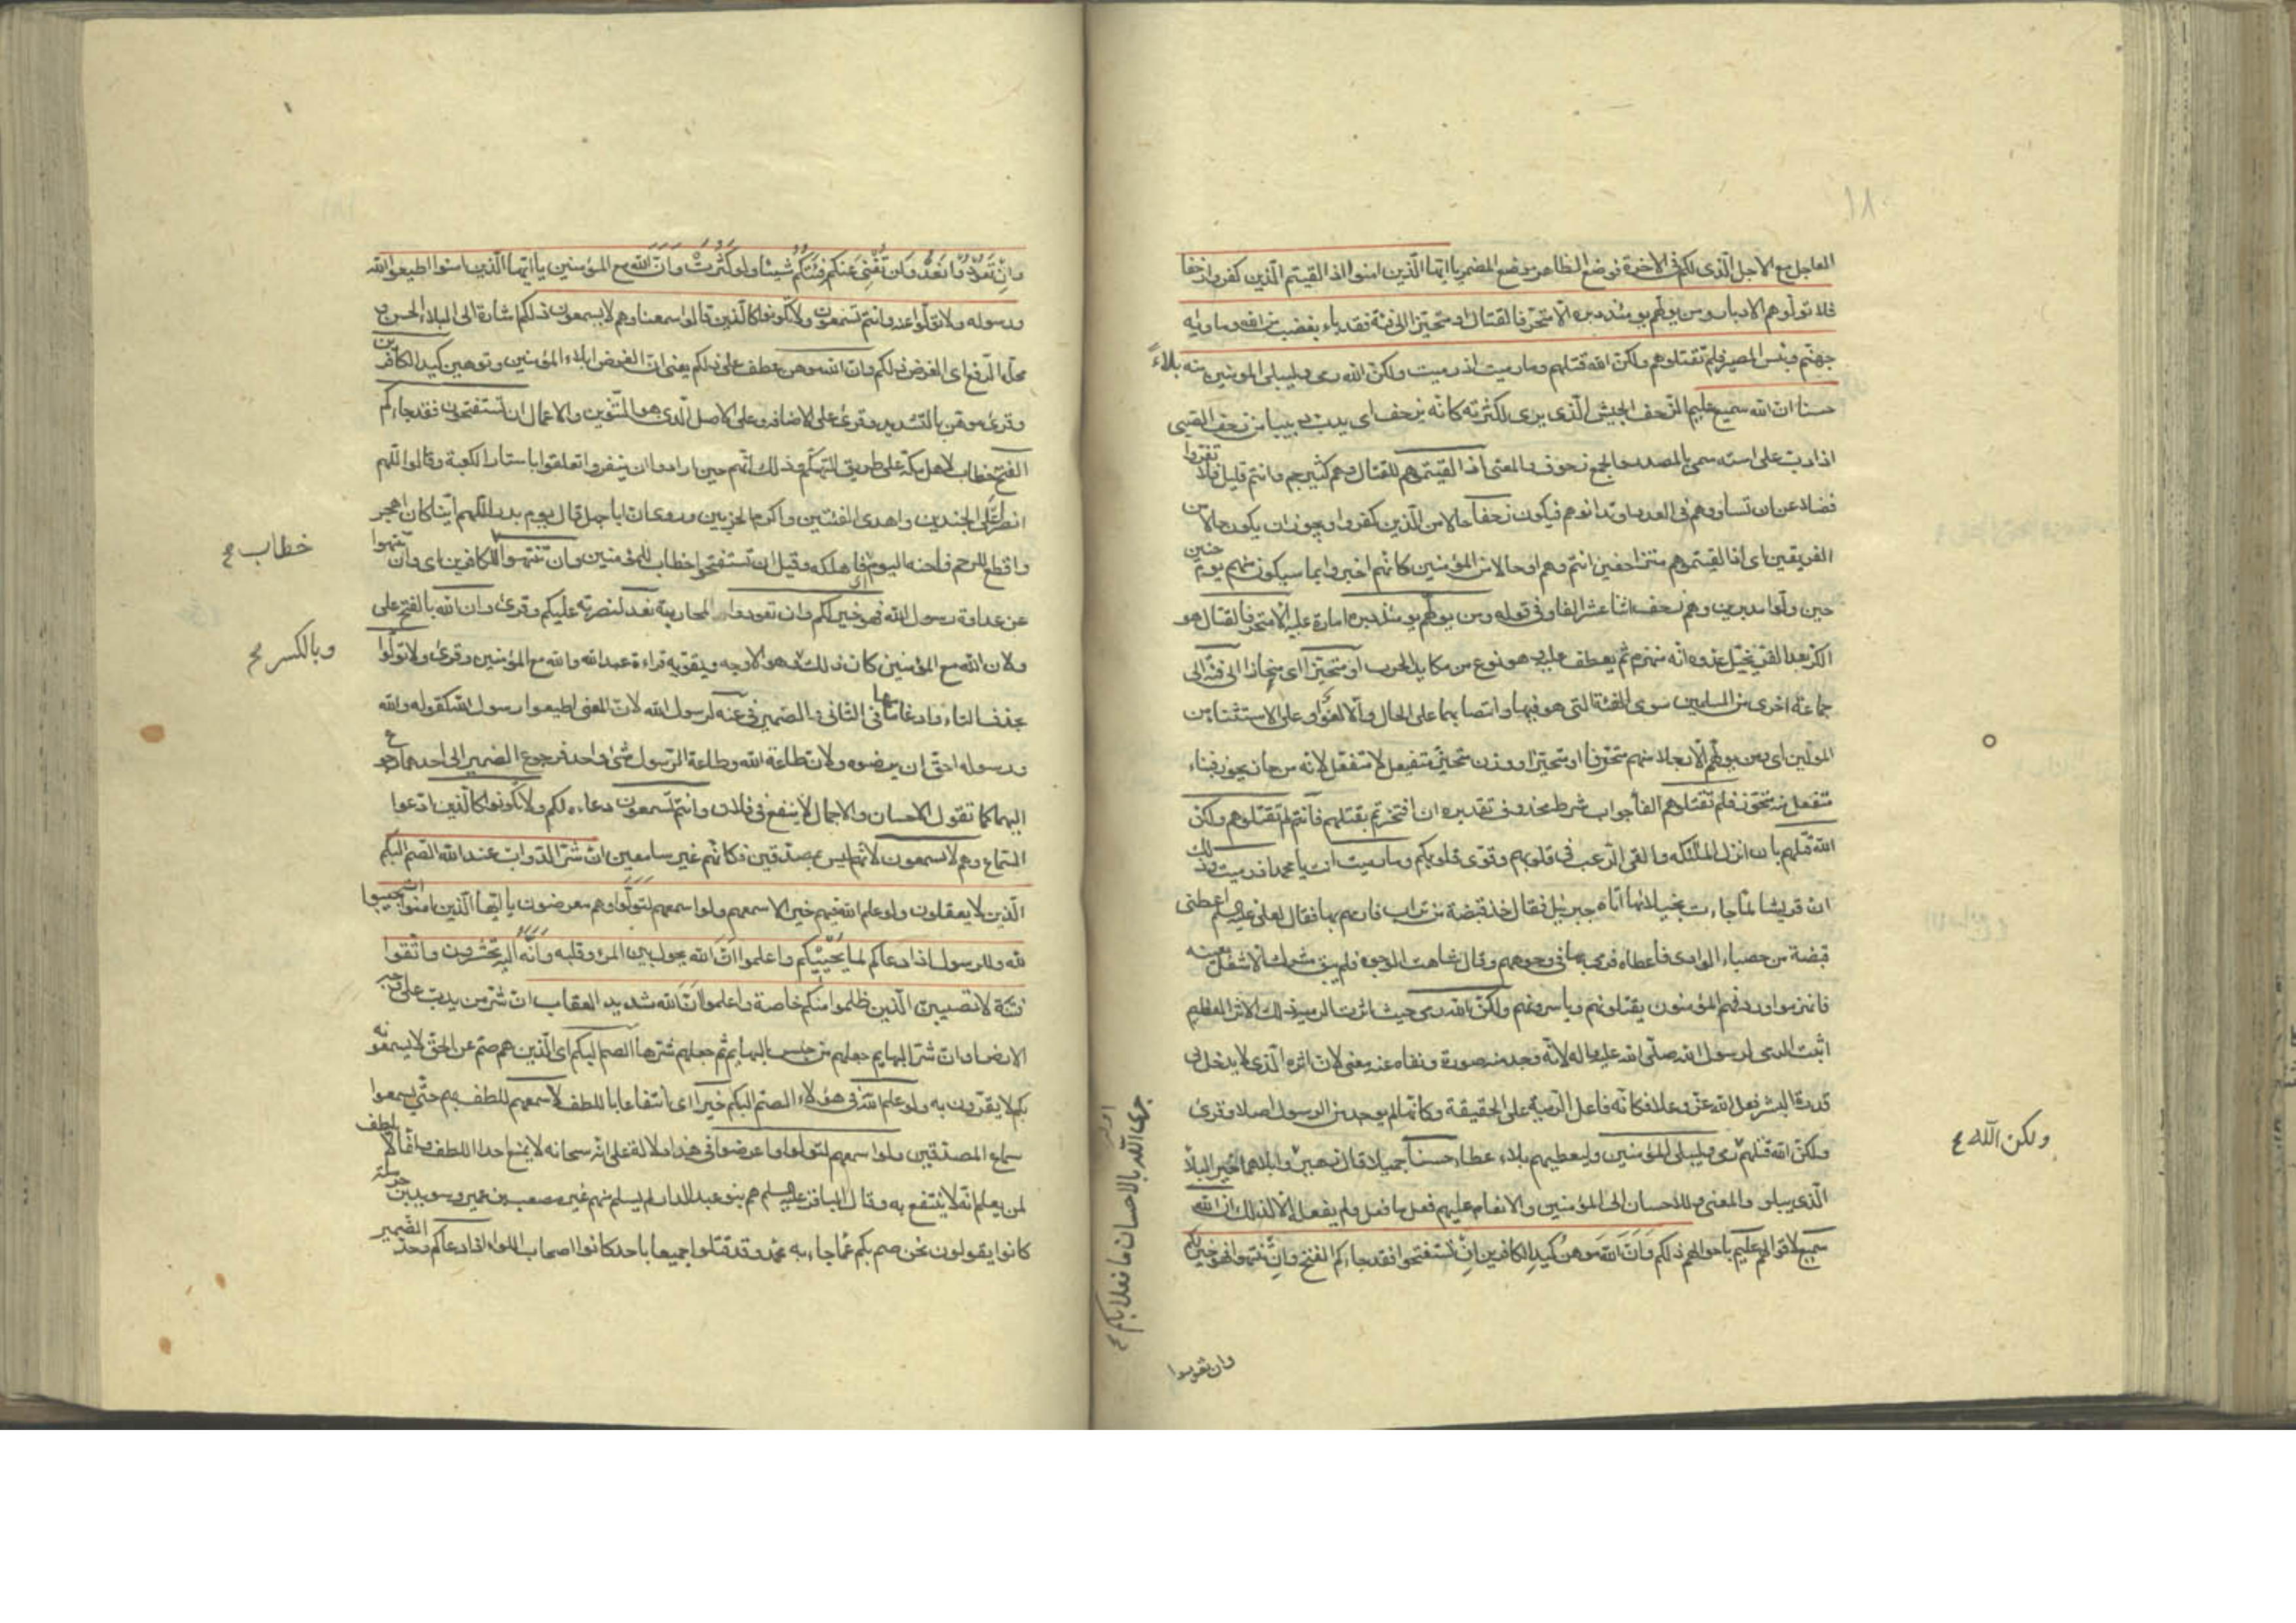 ١٨٠
العاجل مع الاجل الذى لكم فى الاخرة فوضع الظاهر موضع المضمر يا ايها الذين امنوا اذا لقيتم الذين كفروا زحفا
فلا تولوهم الادبار ومن يولهم يومئذ دبره الا متحرفا لقتال او متحيزا الى فئة فقد باء بغضب من الله ومأويه
جهنم وبئس المصير فلم تقتلوهم ولكن الله قتلهم وما رميت اذ رميت ولكن الله رمى وليبلى المؤمنين منه بلاءً
حسنا ان الله سميع عليم الزحف الجيش الذى يرى لكثرته كانه يزحف اى يدب دبيبا من زحف الصبى
اذا دب على استه سمى بالمصدر والجمع زحوف والمعنى اذا لقيتموهم للقتال وهم كثير جم وانتم قليل فلا تفروا
فضلا عن ان تساووهم فى العدد او تدانوهم فيكون زحفا حالا من الذين كفروا ويجوز ان يكون حالا من
الفريقين اى اذا لقيتموهم متزاحفين انتم وهم او حالا من المؤمنين كانهم اخبروا بما سيكون منهم يوم حنين
حين ولوا مدبرين وهم زحف اثنا عشر الفا وفى قوله ومن يولهم يومئذ دبره امارة عليه الا متحرفا لقتال هو
الكر بعد الفر يخيل عدوه انه منهزم ثم يعطف عليه وهو نوع من مكايد الحرب او متحيزا اى منحازا الى فئة الى
جماعة اخرى من المسلمين سوى الفئة التى هو فيها وانتصابهما على الحال والا لغو او على الاستثناء من
المولين اى ومن يولهم الا رجلا منهم متحرفا او متحيزا ووزن متحيز متفيعل لا متفعل لانه من حاز يحوز فبناء
متفعل منه متحوز فلم تقتلوهم الفاء جواب شرط محذوف تقديره ان افتخرتم بقتلهم فانتم لم تقتلوهم ولكن
الله قتلهم بان انزل الملئكة والقى الرعب فى قلوبهم وقوى قلوبكم وما رميت انت يا محمد اذ رميت وذلك
ان قريشا لما جاءت بخيلائها اتاه جبرئيل فقال خذ قبضة من تراب فارمهم بها فقال لعلى عليه السلم اعطنى
قبضة من حصباء الوادى فاعطاه فرمى بها فى وجوههم وقال شاهت الوجوه فلم يبق مشرك الا شغل بعينه
فانهزموا وردفهم المؤمنون يقتلونهم وياسرونهم ولكن الله رمى حيث اثرت الرمية ذلك الاثر العظيم
اثبت الرمى لرسول الله صلى الله عليه واله لانه وجد منه صورة ونفاه عنه معنى لان اثره الذى لا يدخل فى
قدرة البشر فعل الله عز وعلا فكانه فاعل الرمية على الحقيقة وكانها لم يوجد من الرسول اصلا وقرئ
ولكن الله قتلهم رمى وليبلى المؤمنين وليعطيهم بلاء عطاء حسنا جميلا قال زهير وابلاهما خير البلاء
الذى يبلو والمعنى وللاحسان الى المؤمنين والانعام عليهم فعل ما فعل ولم يفعله الا لذلك ان الله
سميع لاقوالهم عليم باحوالهم ذلكم وان الله موهن كيد الكافرين ان تستفتحوا فقد جاءكم الفتح وان تنتهوا فهو خير لكم
ولكن الله ع
جزى الله بالاحسان ما فعلا بكم ع
وان تعودوا
وان تعودوا نعد ولن تغنى عنكم فئتكم شيئا ولو كثرت وان الله مع المؤمنين يا ايها الذين امنوا اطيعوا الله
ورسوله ولا تولوا عنه وانتم تسمعون ولا تكونوا كالذين قالوا سمعنا وهم لا يسمعون ذلكم اشارة الى البلاء الحسن و
محله الرفع اى الغرض ذلكم وان الله موهن عطف على ذلكم يعنى ان الغرض ابلاء المؤمنين وتوهين كيد الكافرين
وقرئ موهن بالتشديد وقرئ على الاضافه وعلى الاصل الذى هو التنوين والاعمال ان تستفتحوا فقد جاءكم
الفتح خطاب لاهل مكة على طريق التهكم وذلك انهم حين ارادوا ان ينفروا تعلقوا باستار الكعبة وقالوا اللهم
انصر اعلى الجندين واهدى الفئتين واكرم الحزبين وروى ان ابا جهل قال يوم بدر اللهم اينا كان اهجر
واقطع للرحم فاحنه اليوم اى فاهلكه وقيل ان تستفتحوا خطاب للمؤمنين وان تنتهوا للكافرين اى وان تنتهوا
عن عداوة رسول الله فهو خير لكم وان تعودوا لمحاربته نعد لنصرته عليكم وقرئ وان الله بالفتح على
ولان الله مع المؤمنين كان ذلك وهو الاوجه ويقويه قراءة عبد الله والله مع المؤمنين وقرئ ولا تولوا
بحذف التاء وادغامها فى الثانى والضمير فى عنه لرسول الله لان المعنى اطيعوا رسول الله كقوله والله
ورسوله احق ان يرضوه ولان طاعة الله وطاعة الرسول شئ واحد فرجوع الضمير الى احدهما كرجوعه
اليهما كما تقول الاحسان والاجمال لا ينفع فى فلان وانتم تسمعون دعاءه لكم ولا تكونوا كالذين ادعوا
السماع وهم لا يسمعون لانهم ليس بمصدقين فكانهم غير سامعين ان شر الدواب عند الله الصم البكم
الذين لا يعقلون ولو علم الله فيهم خيرا لاسمعهم ولو اسمعهم لتولوا وهم معرضون يا ايها الذين امنوا استجيبوا
لله وللرسول اذا دعاكم لما يحييكم واعلموا ان الله يحول بين المرء وقلبه وانه اليه تحشرون واتقوا
فتنة لا تصيبن الذين ظلموا منكم خاصة واعلموا ان الله شديد العقاب ان شر من يدب على وجه
الارض او ان شر البهايم جعلهم من جنس البهايم ثم جعلهم شرها الصم البكم اى الذين هم صم عن الحق لا يسمعونه
بكم لا يقرون به ولو علم الله فى هؤلاء الصم البكم خيرا اى انتفاعا باللطف لاسمعهم للطف بهم حتى يسمعوا
سماع المصدقين ولو اسمعهم لتولوا واعرضوا فى هذا دلالة على انه سبحانه لا يمنع احدا اللطف وانما لا يلطف
لمن يعلم انه لا ينتفع به وقال الباقر عليه السلم هم بنو عبد الدار لم يسلم منهم غير مصعب بن عمير وسويد بن حرملة
كانوا يقولون نحن صم بكم عما جاء به محمد وقد قتلوا جميعا باحد كانوا اصحاب اللواء اذا دعاكم وحد الضمير
خطاب ع
وبالكسر ع